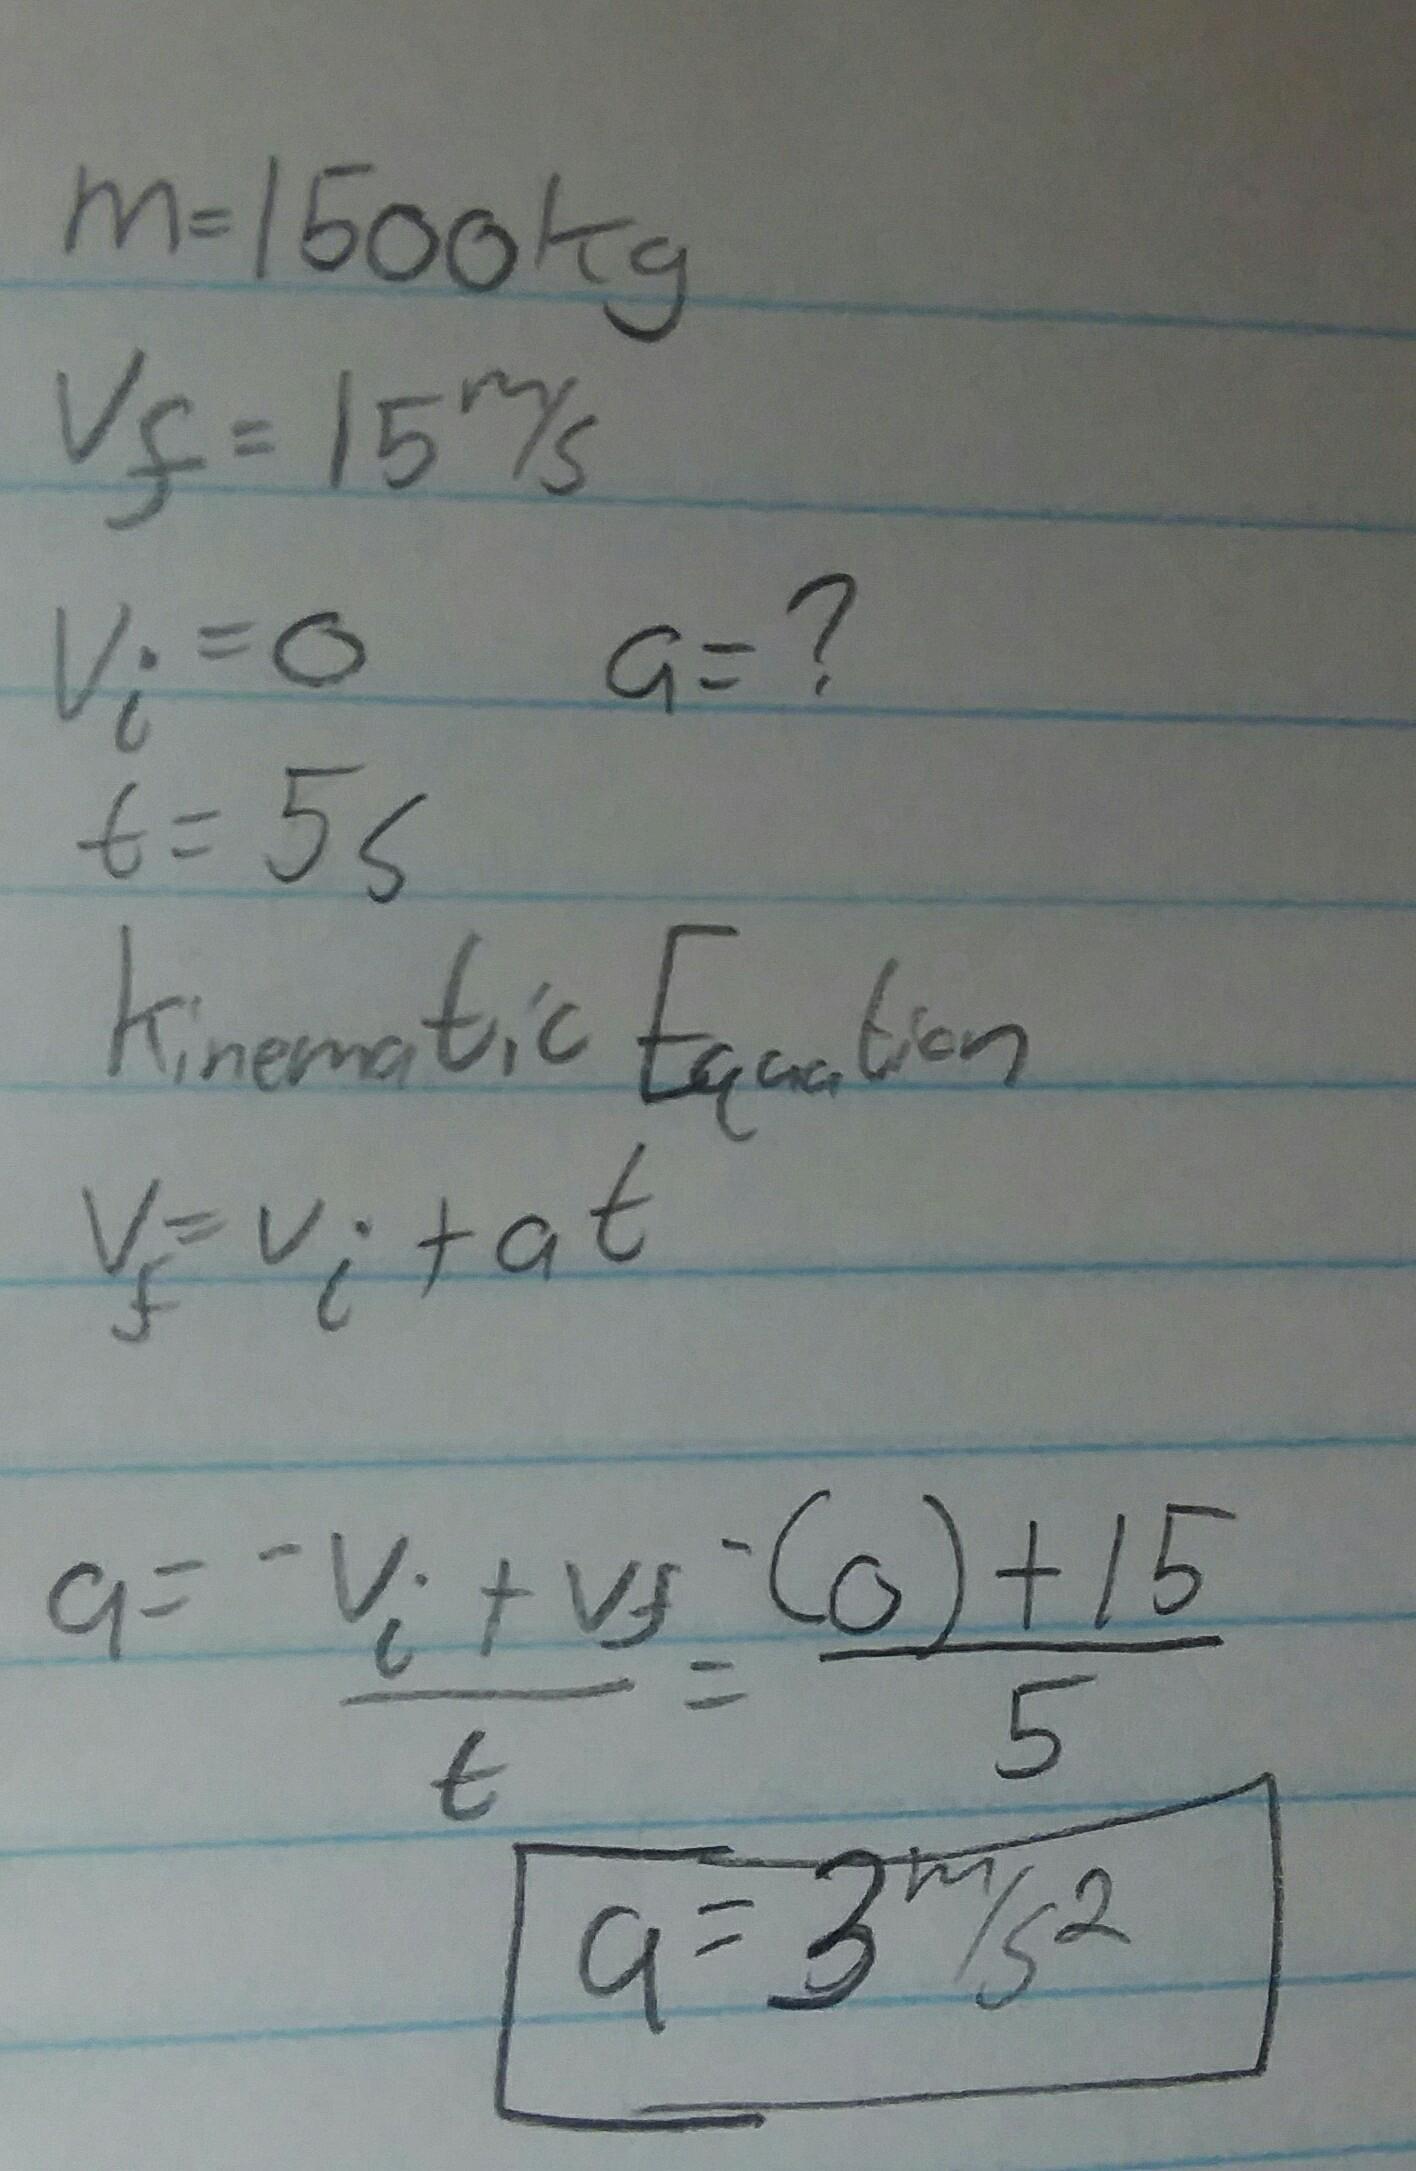 m=1500kg
Vf = 15 m/s
Vi = 0 a = ?
t = 5s
Kinematic Equation
Vf = Vi + at
a = -Vi + Vf / t = -(0) + 15 / 5
a = 3 m/s²